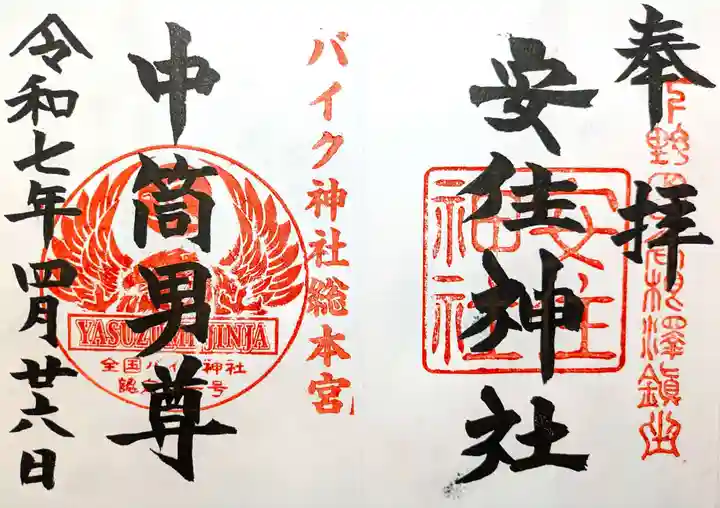 奉拝
安住神社
安住神社
バイク神社総本宮
中筒男尊
YASUZUMI JINJA
全国バイク神社
令和七年四月廿六日